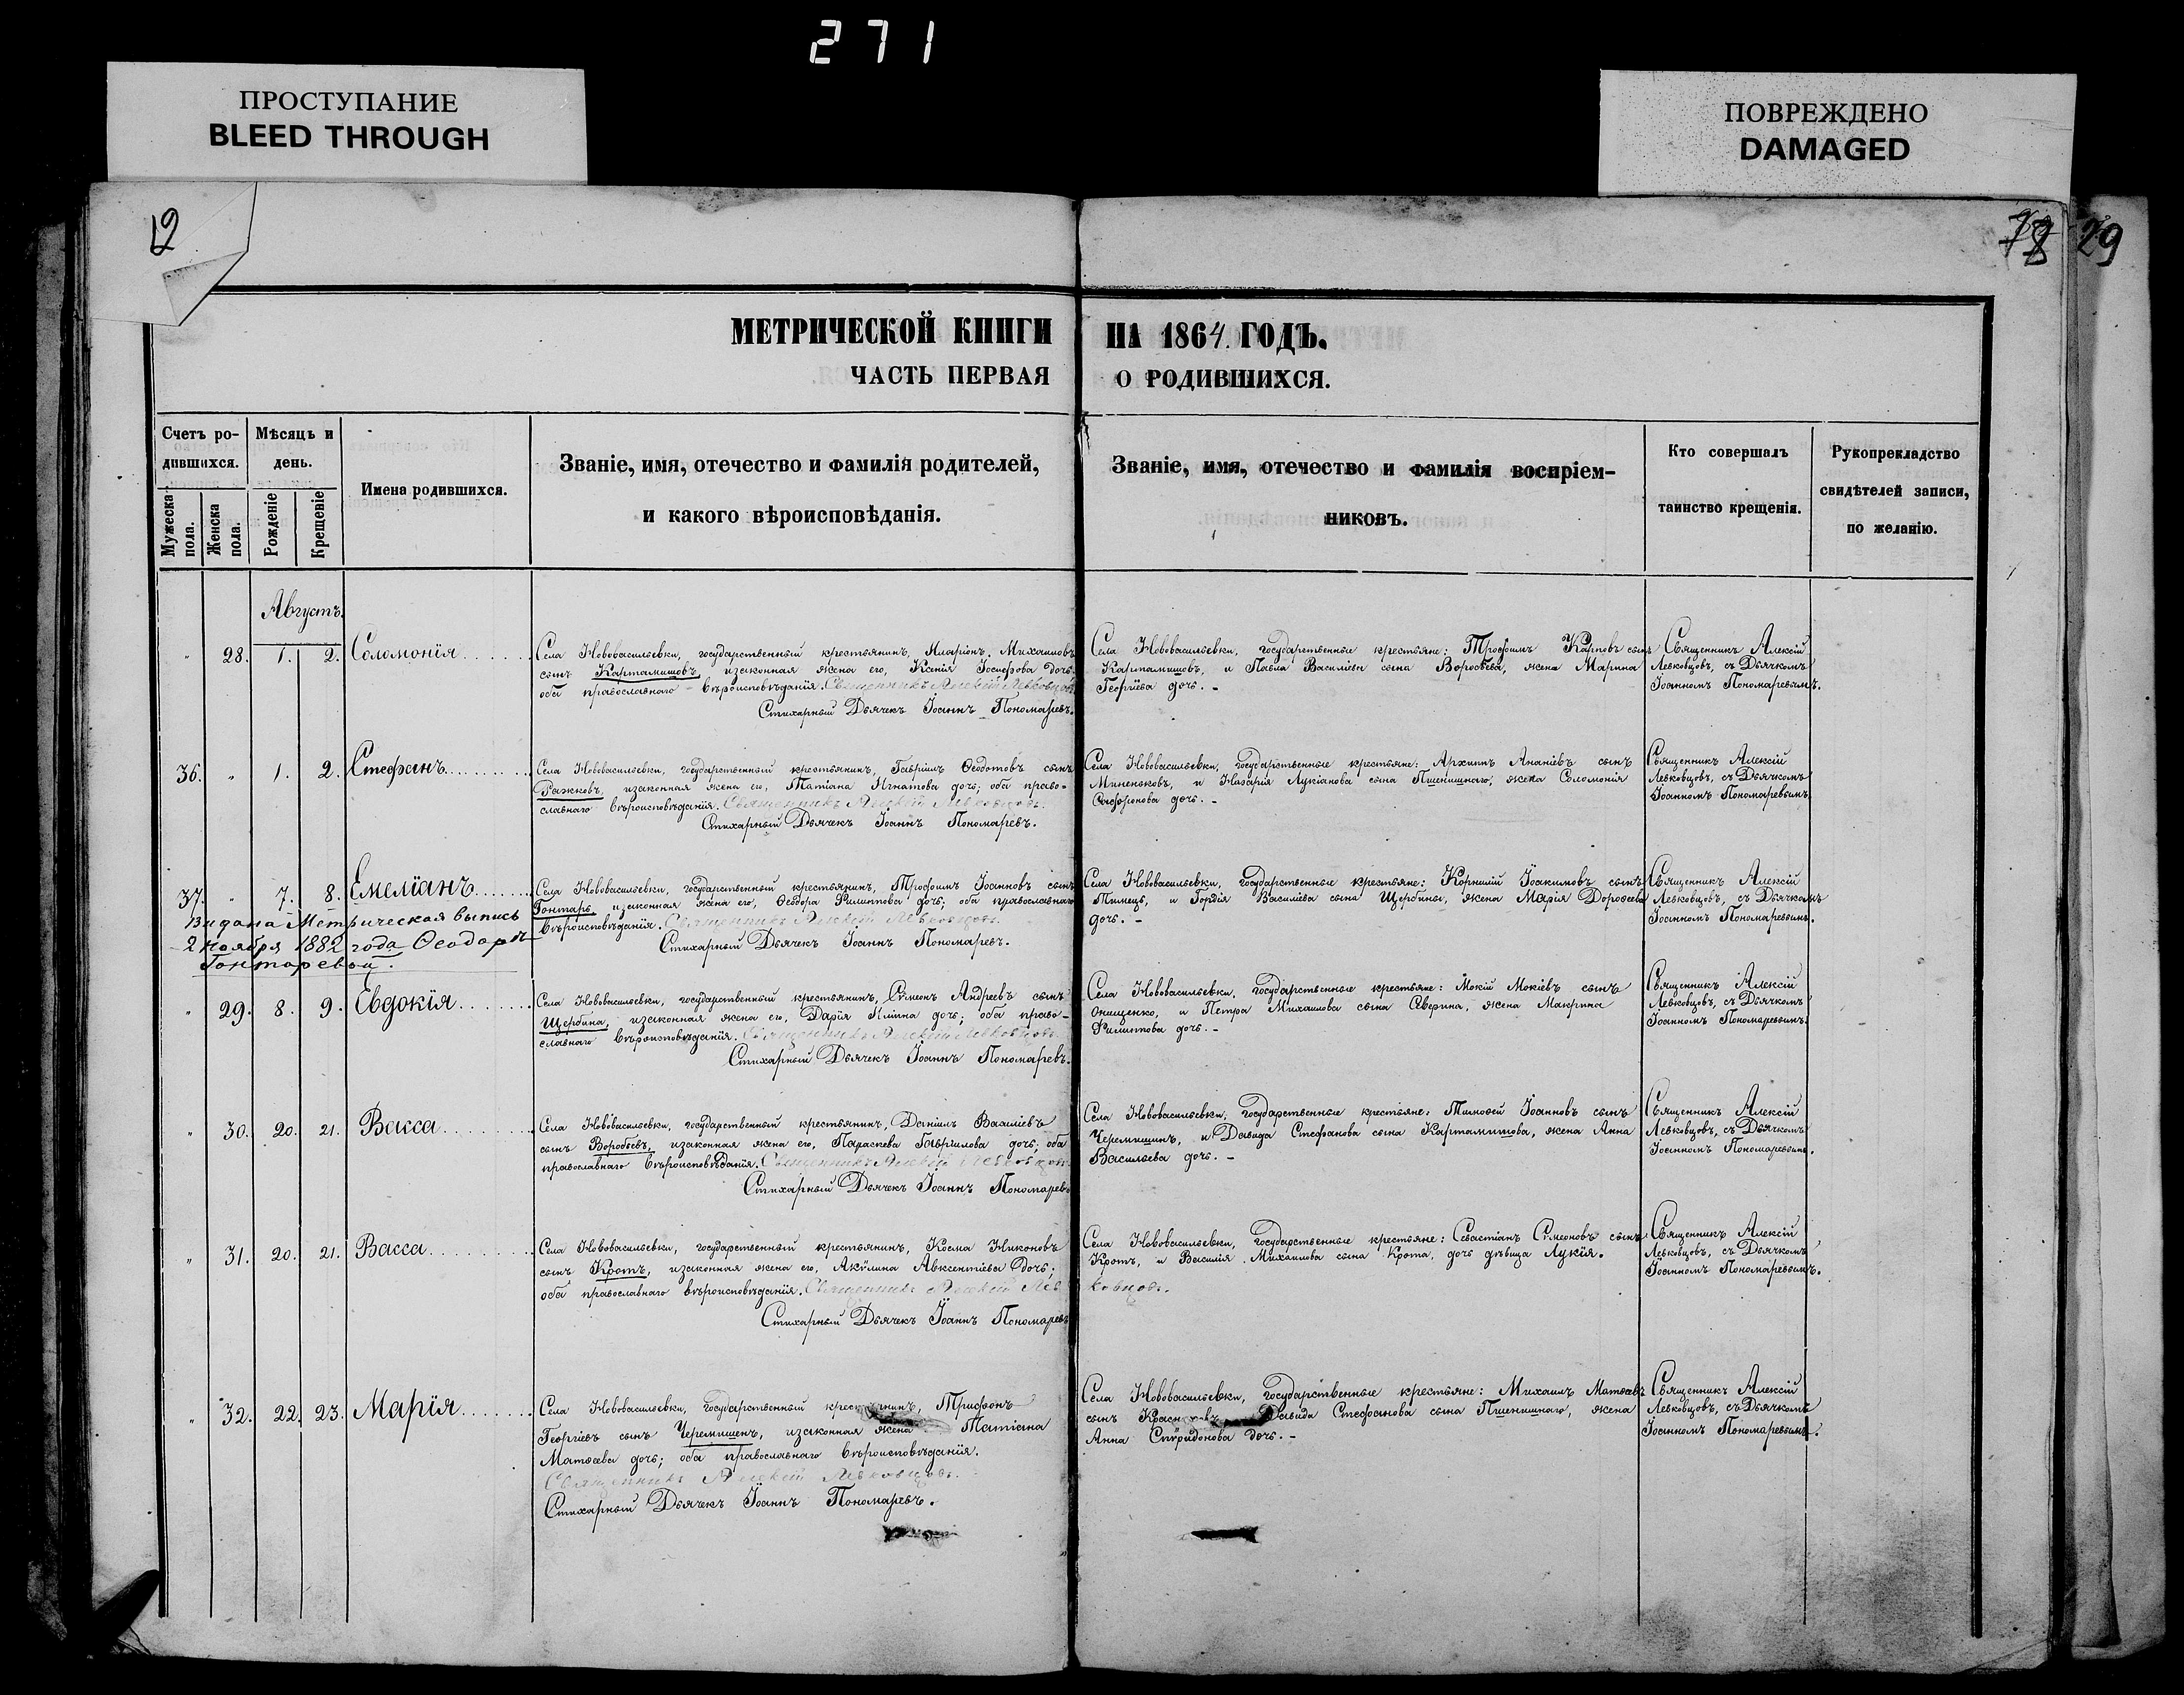 271
ПРОСТУПАНИЕ
BLEED THROUGH
ПОВРЕЖДЕНО
DAMAGED
29
МЕТРИЧЕСКОЙ КНИГИ НА 1864. ГОДЪ.
ЧАСТЬ ПЕРВАЯ О РОДИВШИХСЯ.
Счетъ ро-
дившихся.
Мужеска
пола.
Женска
пола.
Мѣсяцъ и
день.
Рожденіе
Крещеніе
Имена родившихся.
Званіе, имя, отечество и фамилія родителей,
и какого вѣроисповѣданія.
Званіе, имя, отечество и фамилія воспріем-
никовъ.
Кто совершалъ
таинство крещенія.
Рукоприкладство
свидѣтелей записи,
по желанію.
Августъ.
„ 28. 1. 2. Соломонія
Села Нововасильевки, государственный крестьянинъ, Иларіонъ Михаиловъ
сынъ Картамишовъ, изаконная жена его, Ксенія Іосифова дочь;
оба православнаго вѣроисповѣданія. Священникъ Алексій Левковцовъ
Стихарный Дьячекъ Іоаннъ Пономаревъ.
Села Нововасильевки, государственные крестьяне: Трофимъ Карповъ сынъ
Картамишовъ, и Павла Василіева сына Воробьева, жена Марина
Георгіева дочь. –
Священникъ Алексій
Левковцовъ, съ Дьячкомъ
Іоанномъ Пономаревымъ.
36. „ 1. 2. Стефанъ
Села Нововасильевки, государственный крестьянинъ, Гавріилъ Ѳедотовъ сынъ
Ражковъ, изаконная жена его, Татіана Игнатова дочь; оба право-
славнаго вѣроисповѣданія. Священникъ Алексій Левковцовъ.
Стихарный Дьячекъ Іоаннъ Пономаревъ.
Села Нововасильевки, государственные крестьяне: Архипъ Ананіевъ сынъ
Миненковъ, и Назарія Лукіанова сына Пшенишнаго, жена Соломонія
Софронова дочь. –
Священникъ Алексій
Левковцовъ, съ Дьячкомъ
Іоанномъ Пономаревымъ
37. „ 7. 8. Емеліанъ
Села Нововасильевки, государственный крестьянинъ, Трофимъ Іоанновъ сынъ
Гонтарь, изаконная жена его, Ѳеодора Филиппова дочь; оба православнаго
вѣроисповѣданія. Священникъ Алексій Левковцовъ.
Стихарный Дьячекъ Іоаннъ Пономаревъ.
Села Нововасильевки, государственные крестьяне: Корнилій Іоакимовъ сынъ
Тинецъ, и Гордія Василіева сына Щербины, жена Марія Дорофеева
дочь. –
Священникъ Алексій
Левковцовъ, съ Дьячкомъ
Іоанномъ Пономаревымъ.
Видана Метрическая выпись
2 ноября 1882 года Ѳеодоръ
Гонтаревой.
„ 29. 8. 9. Евдокія
Села Нововасильевки, государственный крестьянинъ, Симеонъ Андреевъ сынъ
Щербина, изаконная жена его, Дарія Иліина дочь; оба право-
славнаго вѣроисповѣданія. Священникъ Алексій Левковцовъ
Стихарный Дьячекъ Іоаннъ Пономаревъ.
Села Нововасильевки, государственные крестьяне: Мокій Мокіевъ сынъ
Онищенко, и Петра Михаилова сына Северина, жена Макрина
Филиппова дочь. –
Священникъ Алексій
Левковцовъ, съ Дьячкомъ
Іоанномъ Пономаревымъ.
„ 30. 20. 21. Васса
Села Нововасильевки, государственный крестьянинъ, Даніилъ Василіевъ
сынъ Воробьевъ, изаконная жена его, Параскева Гавріилова дочь; оба
православнаго вѣроисповѣданія. Священникъ Алексій Левковцовъ
Стихарный Дьячекъ Іоаннъ Пономаревъ
Села Нововасильевки, государственные крестьяне: Тимофей Іоанновъ сынъ
Черемишинъ, и Давида Стефанова сына Картамишова, жена Анна
Васильева дочь. –
Священникъ Алексій
Левковцовъ, съ Дьячкомъ
Іоанномъ Пономаревымъ.
„ 31. 20. 21. Васса
Села Нововасильевки, государственный крестьянинъ, Косма Никоновъ
сынъ Кротъ, изаконная жена его, Акилина Авксентіева дочь;
оба православнаго вѣроисповѣданія. Священникъ Алексій Левковцовъ.
Стихарный Дьячекъ Іоаннъ Пономаревъ
Села Нововасильевки, государственные крестьяне: Севастіанъ Симеоновъ сынъ
Кротъ, и Василія Михаилова сына Крота, дочь дѣвица Лукія.
Священникъ Алексій
Левковцовъ, съ Дьячкомъ
Іоанномъ Пономаревымъ.
„ 32. 22. 23. Марія
Села Нововасильевки, государственный крестьянинъ, Трифонъ
Георгіевъ сынъ Черемишенъ, изаконная жена Татіана
Матѳеева дочь; оба православнаго вѣроисповѣданія.
Священникъ Алексій Левковцовъ.
Стихарный Дьячекъ Іоаннъ Пономаревъ.
Села Нововасильевки, государственные крестьяне: Михаилъ Матѳеевъ
сынъ Давида Стефанова сына Пшенишнаго, жена
Анна Спиридонова дочь. –
Священникъ Алексій
Левковцовъ, съ Дьячкомъ
Іоанномъ Пономаревымъ.